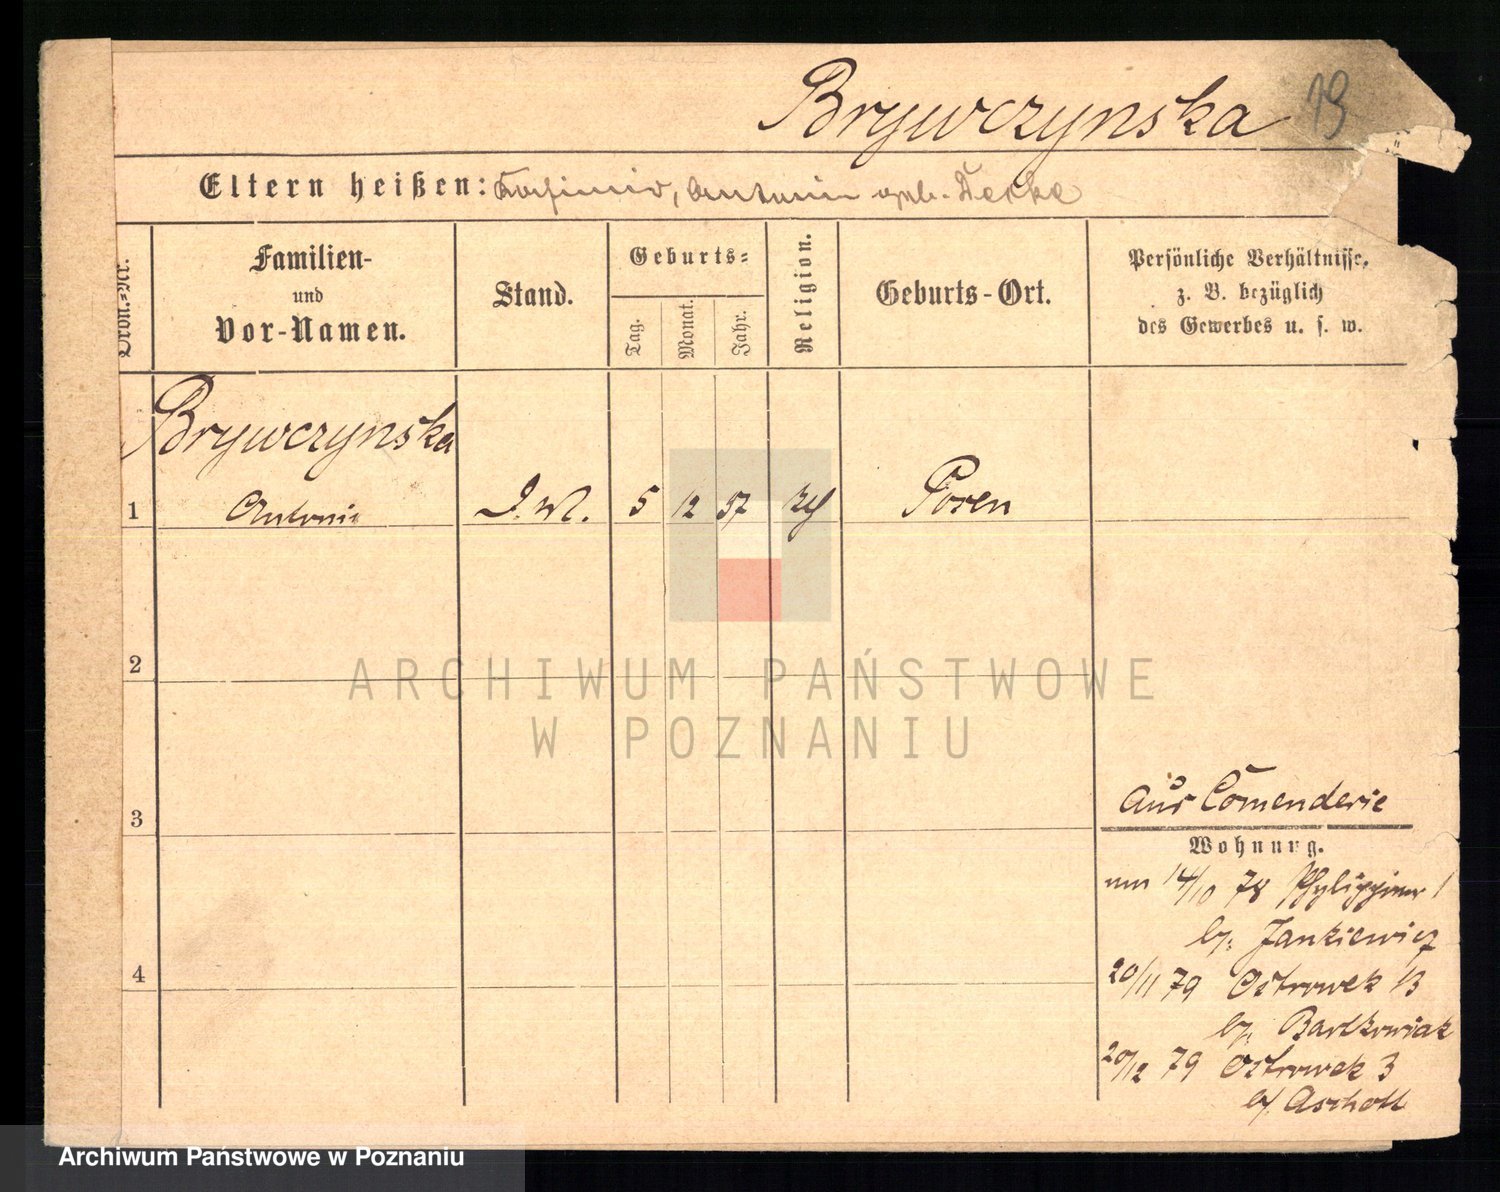 Brywczynska 19
Eltern heißen: Kasimir, Antonie geb. Teske
Ordn.-Nr.
Familien-
und
Vor-Namen.
Stand.
Geburts-
Tag.
Monat.
Jahr.
Religion.
Geburts-Ort.
Persönliche Verhältnisse,
z. B. bezüglich
des Gewerbes u. s. w.
Brywczynska
1 Antonie D. M. 5 12 57 Posen
2
3
4
aus Comenderie
Wohnung.
14/10 78
b/: Jankiewicz
20/11 79 Ostrowek 13
b/: Bartkowiak
20/12 79 Ostrowek 3
b/
ARCHIWUM PAŃSTWOWE
W POZNANIU
Archiwum Państwowe w Poznaniu